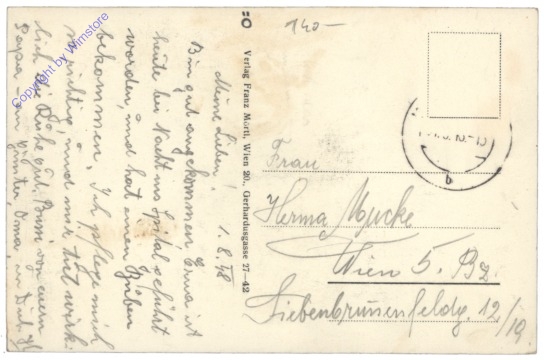 140.-
Verlag Franz Mörtl, Wien 20., Gerhardusgasse 27—42
1.8.48
Meine Lieben!
Bin gut angekommen, Erna ist
heute bei Nacht ins Spital geführt
worden, und hat einen Buben
bekommen. Ich pflege mich
richtig, und mir tut wirk-
lich die Ruhe gut. Bussi von euern
Papa
Oma
Frau
Herma Mucke
Wien 5. Bz.
Siebenbrunnenfeldg. 12/19
b
Copyright by Wimstore